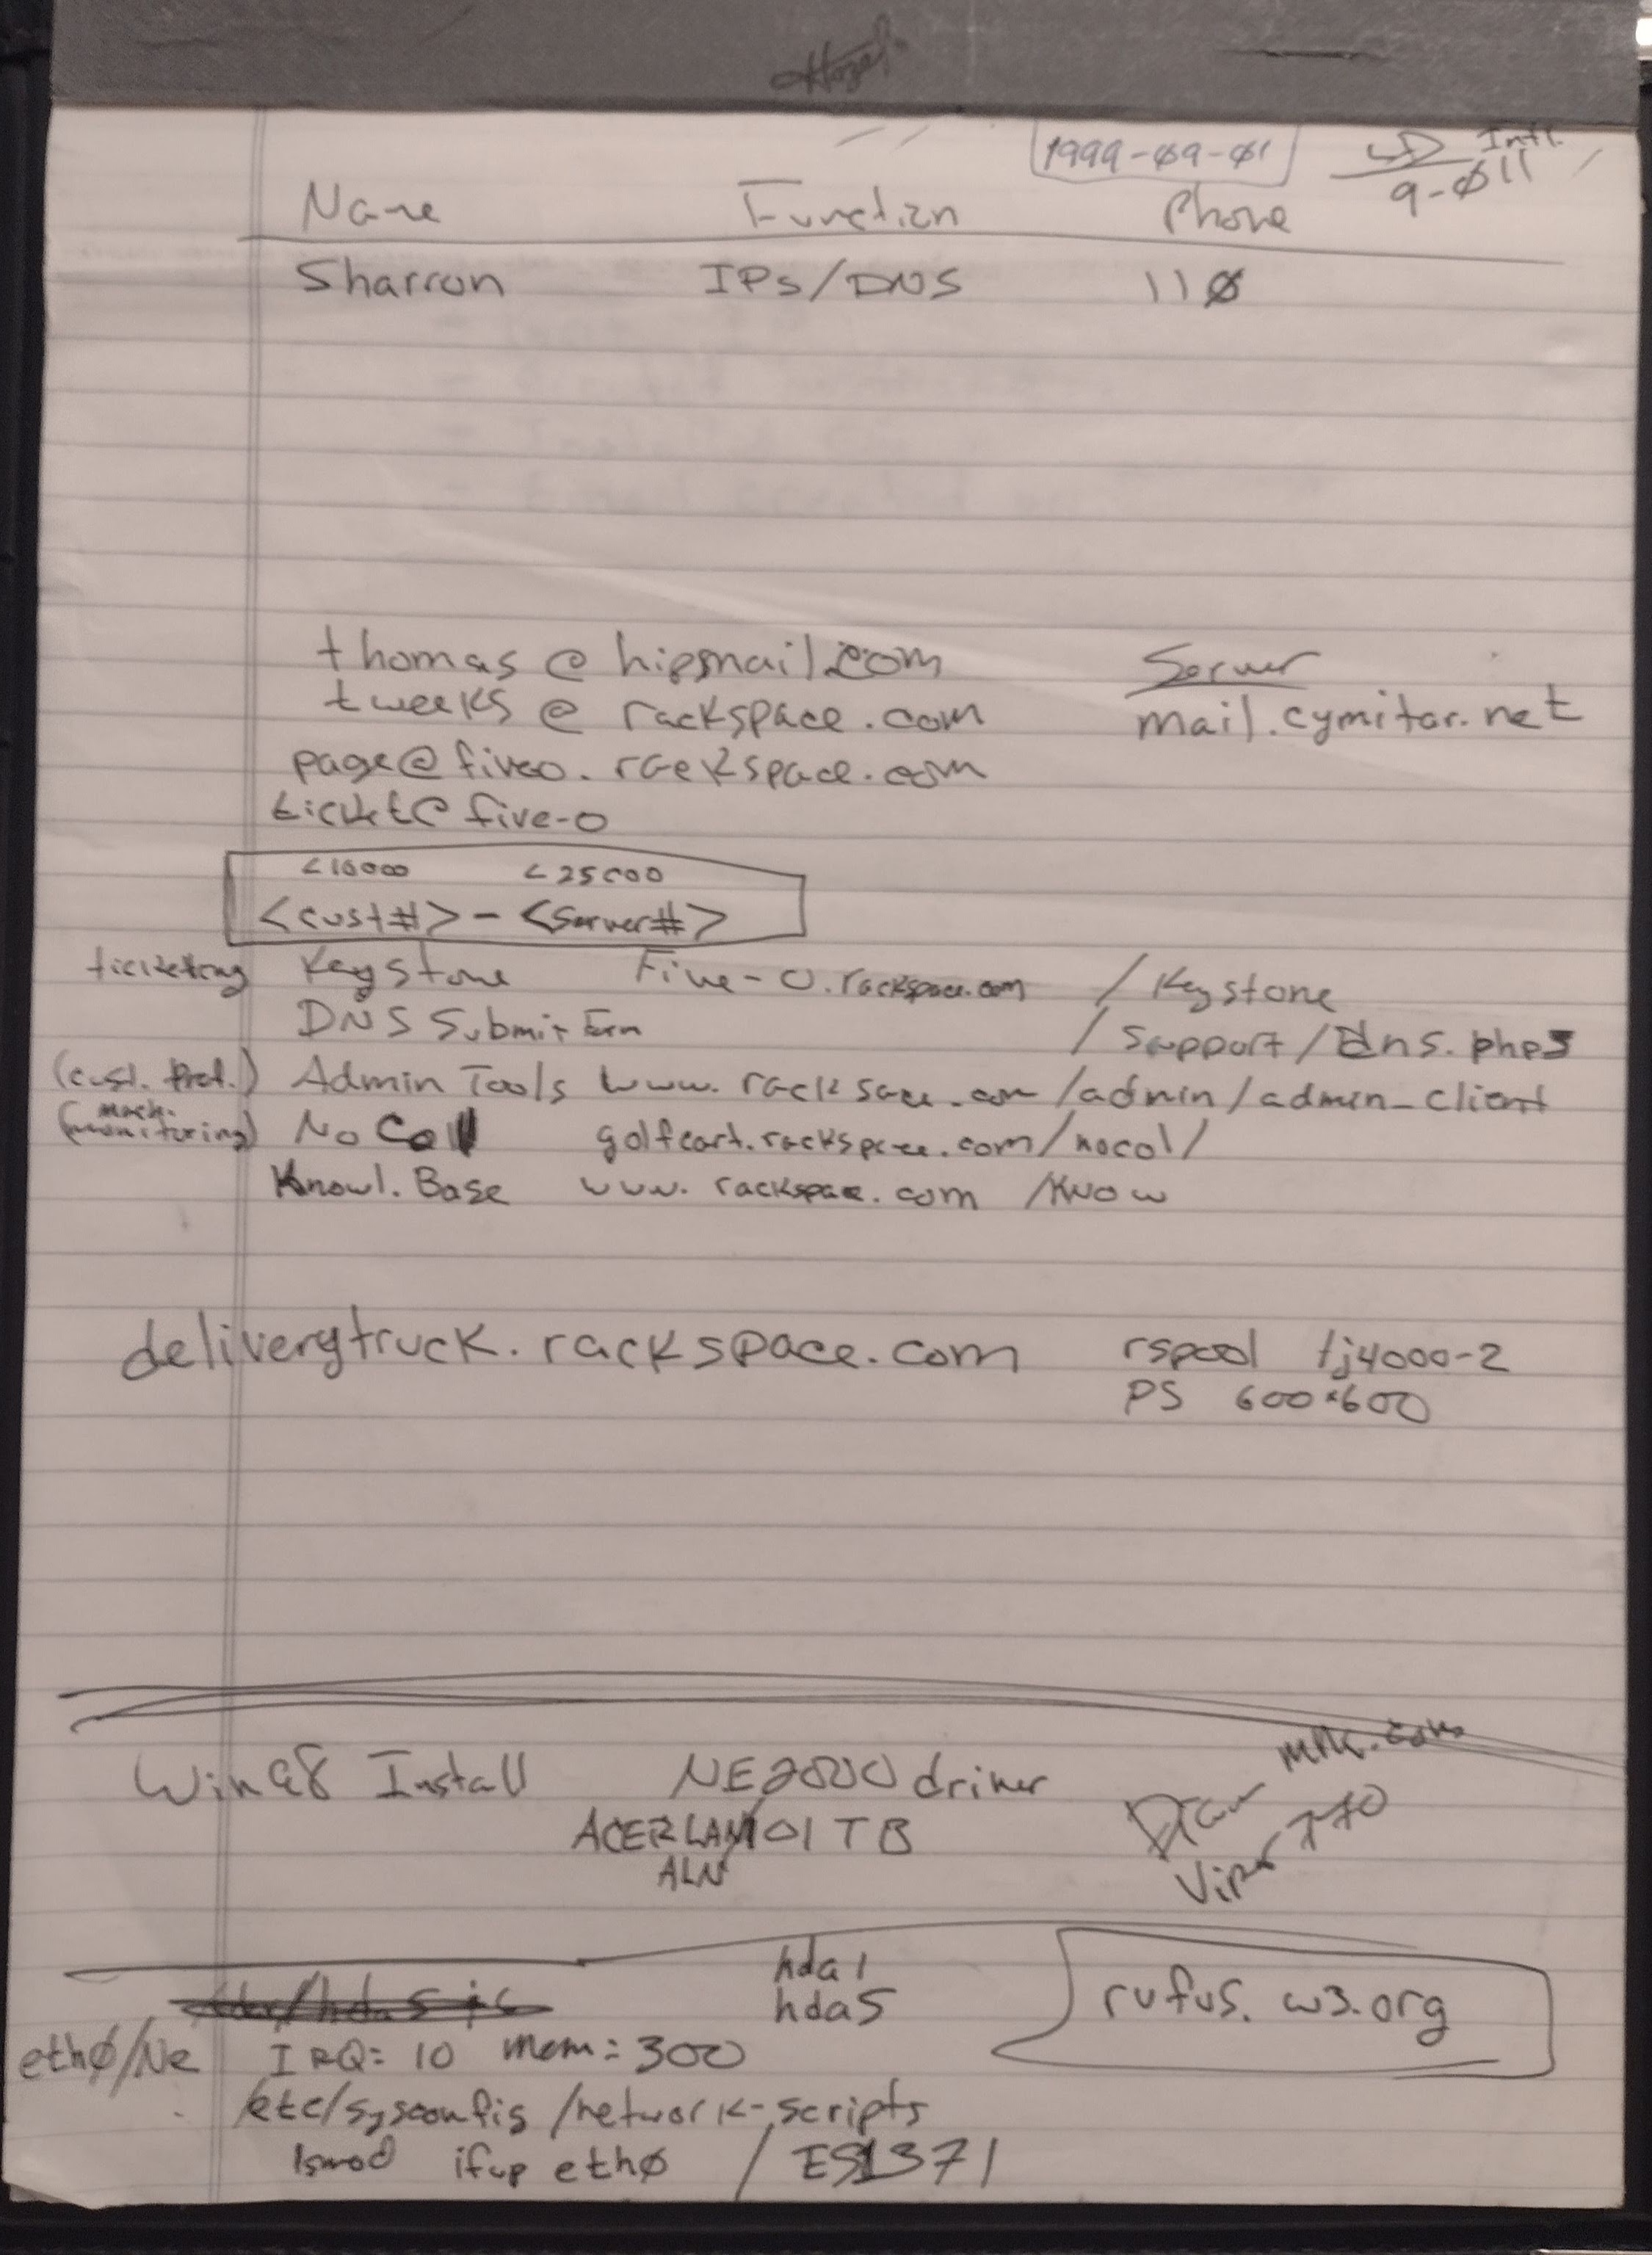 1999-09-01 Intl.
9-011
Name Function Phone
Sharron IPs/DNS 110
thomas@hipsmail.com Server
tweeks@rackspace.com mail.cymitar.net
page@fiveo.rackspace.com
ticket@five-o
<10000 <25000
<cust#>-<Server#>
ticketing Keystone Five-O.rackspace.com /Keystone
DNS Submit Form /support/dns.php3
(cust. Prof.) Admin Tools www.racksace.com/admin/admin_client
(mach. monitoring) NoCol golfcart.rackspace.com/nocol/
Knowl. Base www.rackspace.com /Know
deliverytruck.rackspace.com rspool lj4000-2
PS 600x600
Win98 Install NE2000 driver
ACERLAN101TB
ALN
Viper 770
hda1
hda5 rufus.w3.org
eth0/Ne IRQ=10 mem=300
/etc/sysconfig/network-scripts
lsmod ifup eth0 / ES1371